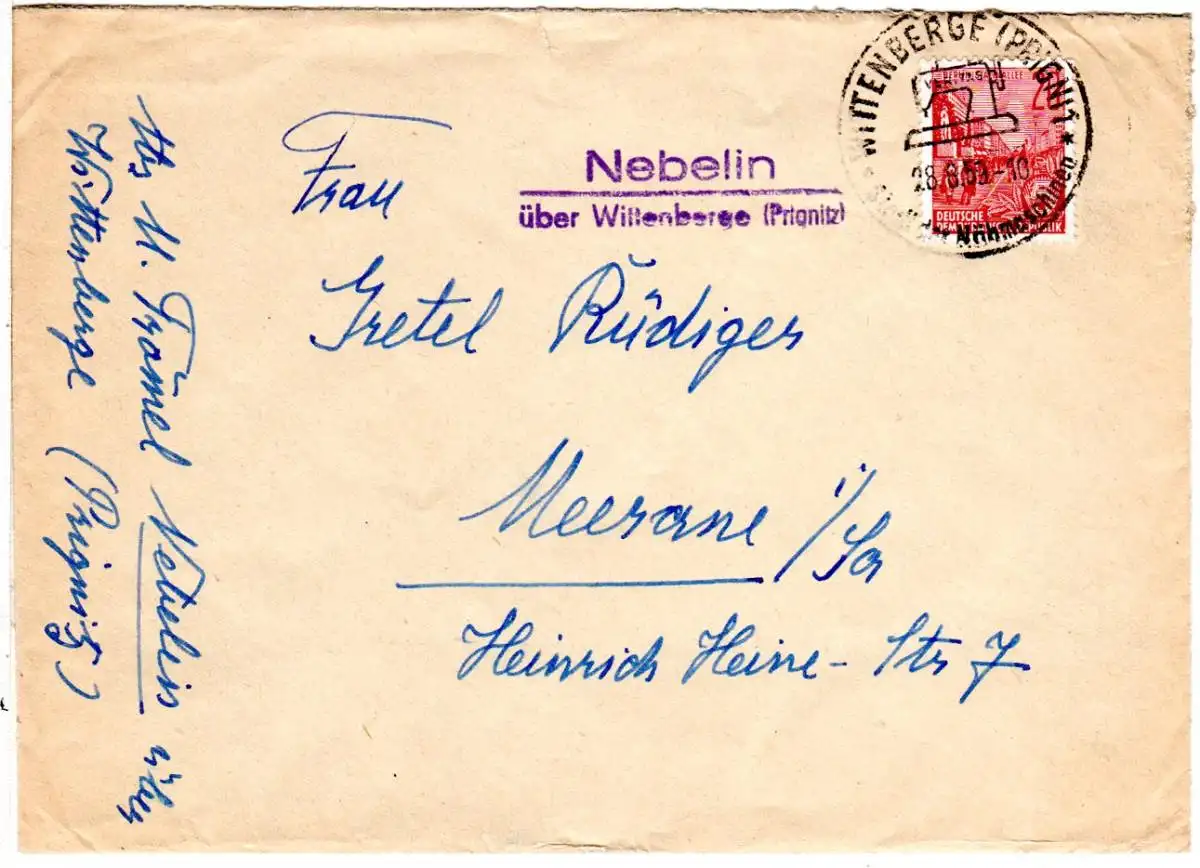 WITTENBERGE (PRIGNITZ)
28.8.55-10
Nähmaschinen
20
DEUTSCHE
DEMOKRATISCHE REPUBLIK
Nebelin
über Wittenberge (Prignitz)
Frau
Gretel Rüdiger
Meerane i/Sa
Heinrich Heine-Str 7
Abs U. Trömel Nebelin über
Wittenberge (Prignitz)